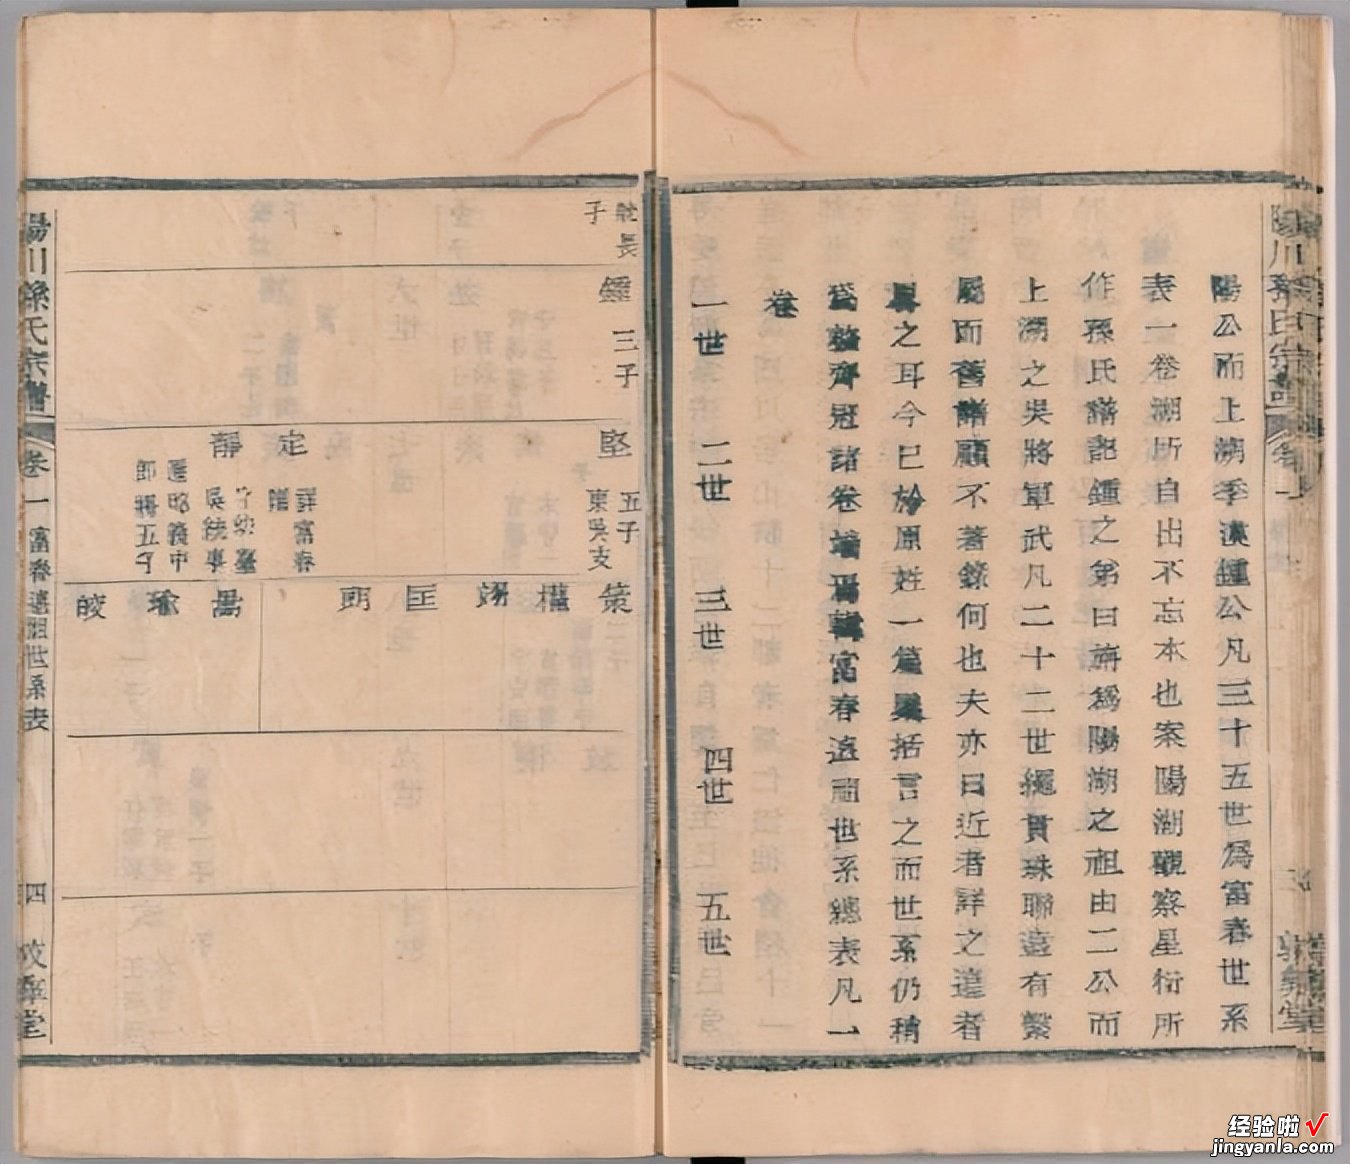 陽公而上溯季漢鍾公凡三十五世為富春世系
表一卷溯所自出不忘本也案陽湖觀察星衍所
作孫氏譜記鍾之弟曰旃為陽湖之祖由二公而
上溯之吳將軍武凡二十二世繩貫珠聯遠有繫
屬而舊譜顧不著錄何也夫亦曰近者詳之遠者
畧之耳今已於原姓一篇櫽括言之而世系仍稍
為整齊冠諸卷端焉輯富春遠祖世系總表凡一
卷
一世 二世 三世 四世 五世
長
子
鍾 三子
堅 五子
東吳支
定 詳富春
譜
靜 子幼臺
吳
昭義中
郎將五子
策 權 翊 匡 朗
暠 瑜 皎
陽川孫氏宗譜 卷一 富春遠祖世系表 四
經驗啦
jingyanla.com